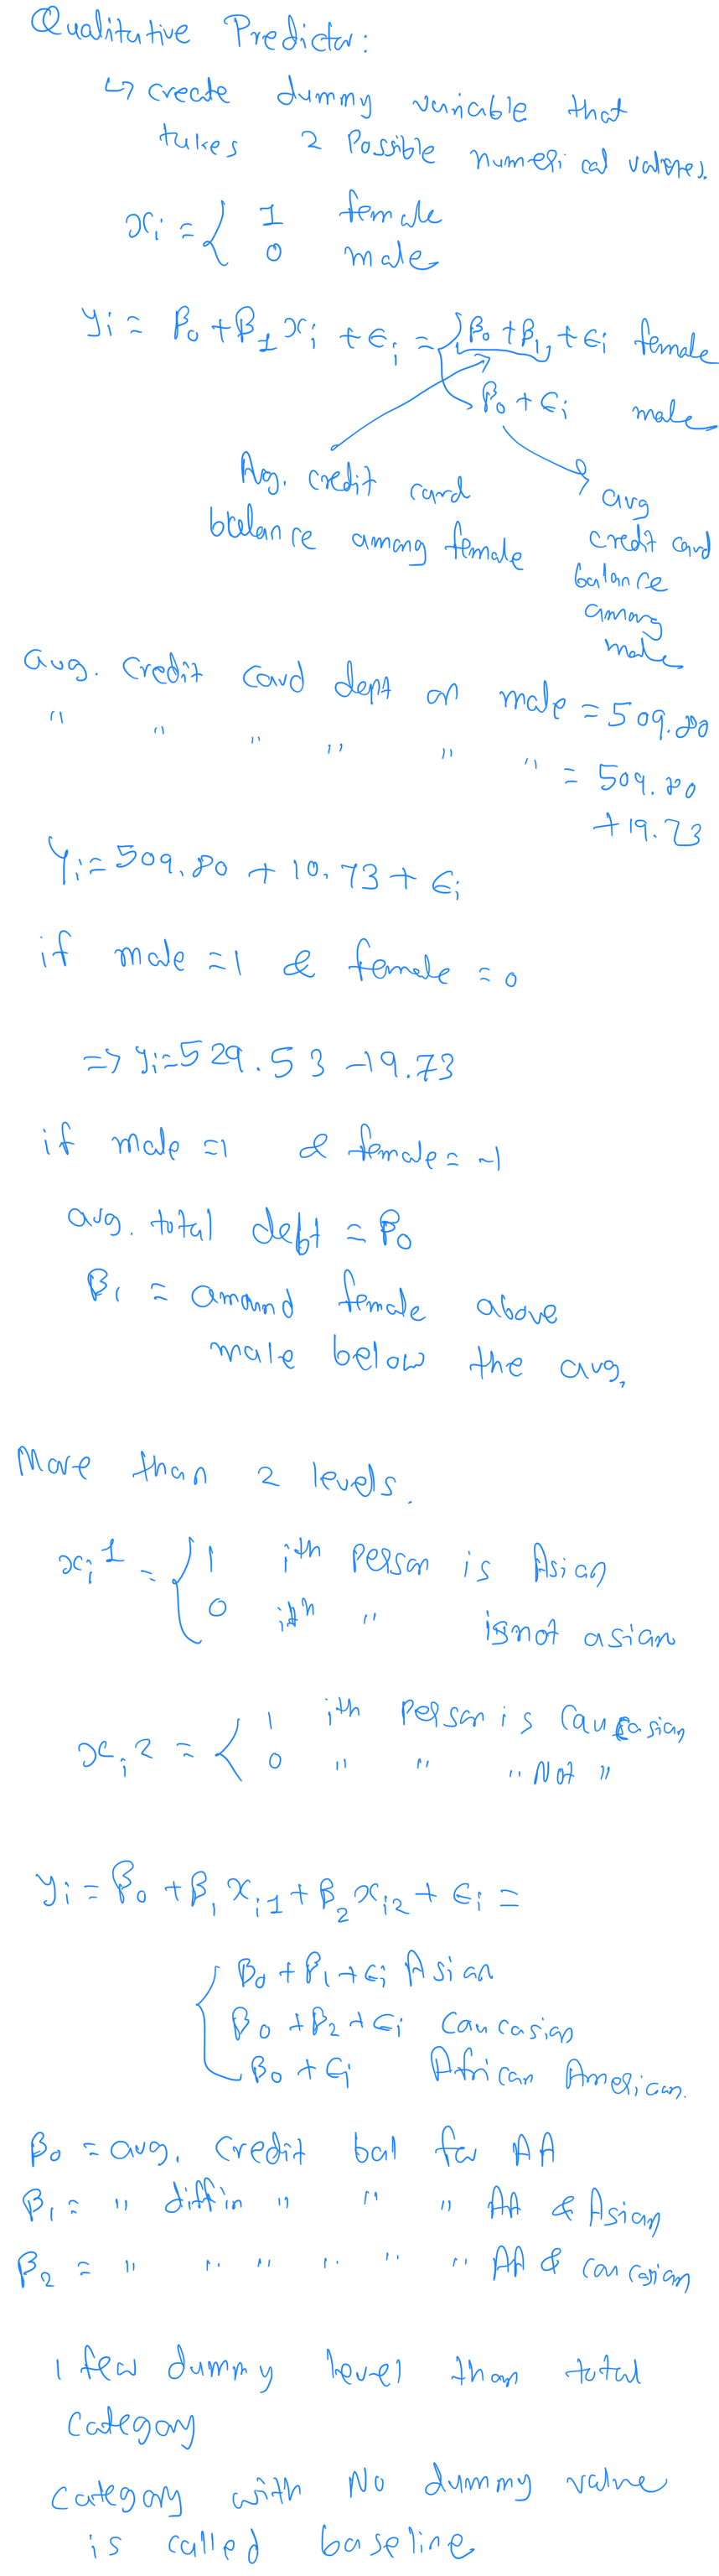 Qualitative Predictor:
↳ create dummy variable that
takes 2 Possible numerical values.
xi = { 1 female
0 male
yi = β0 + β1 xi + ϵi = { β0 + β1 + ϵi female
β0 + ϵi male
Avg. credit card
balance among female
avg
credit card
balance
among
male
avg. credit card dept on male = 509.80
" " " " " " = 509.80
+19.73
Yi = 509.80 + 10.73 + ϵi
if male = 1 & female = 0
=> yi = 529.53 - 19.73
if male = 1 & female = -1
avg. total debt = β0
β1 = amound female above
male below the avg.
More than 2 levels.
xi1 = { 1 ith person is Asian
0 ith " is not asian
xi2 = { 1 ith person is Caucasian
0 " " " Not "
yi = β0 + β1 xi1 + β2 xi2 + ϵi =
{ β0 + β1 + ϵi Asian
β0 + β2 + ϵi Caucasian
β0 + ϵi African American.
β0 = avg. credit bal for AA
β1 = " diff in " " " AA & Asian
β2 = " " " " " " AA & Caucasian
1 few dummy level than total
category
category with No dummy value
is called baseline